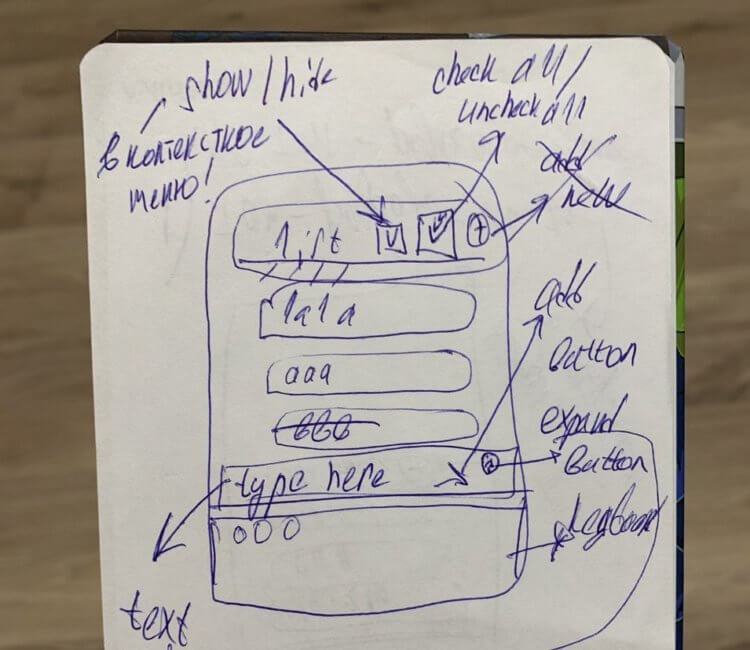 show/hide
в контекстное
меню!
check all/
uncheck all
add
new
list
lala
add
button
aaa
expand
bbb
button
type here
keyboard
text